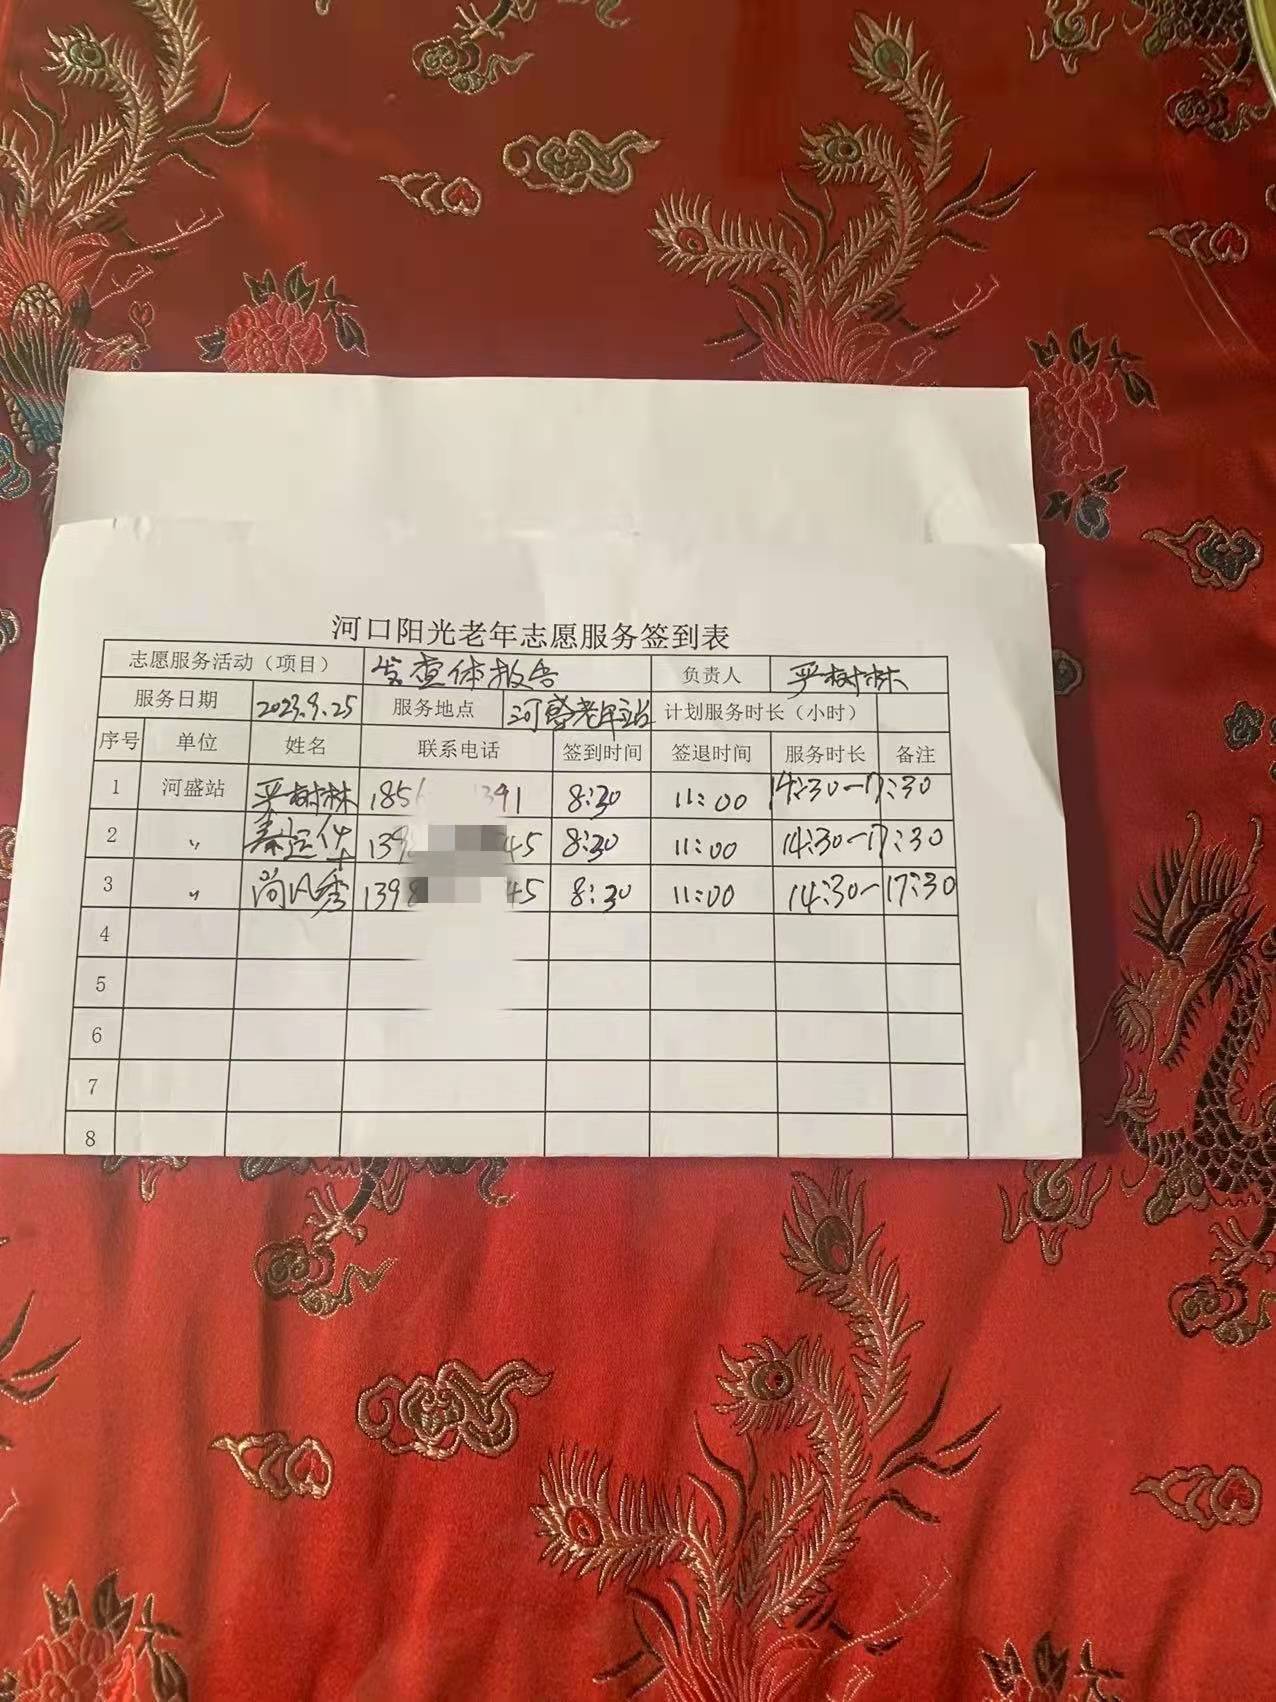 河口阳光老年志愿服务签到表
志愿服务活动（项目） 发查体报告 负责人 严树林
服务日期 2023.9.25 服务地点 河盛老年站 计划服务时长（小时）
序号 单位 姓名 联系电话 签到时间 签退时间 服务时长 备注
1 河盛站 严树林 185 391 8:30 11:00 14:30-17:30
2 〃 秦运华 139 45 8:30 11:00 14:30-17:30
3 〃 尚风秀 1398 45 8:30 11:00 14:30-17:30
4
5
6
7
8